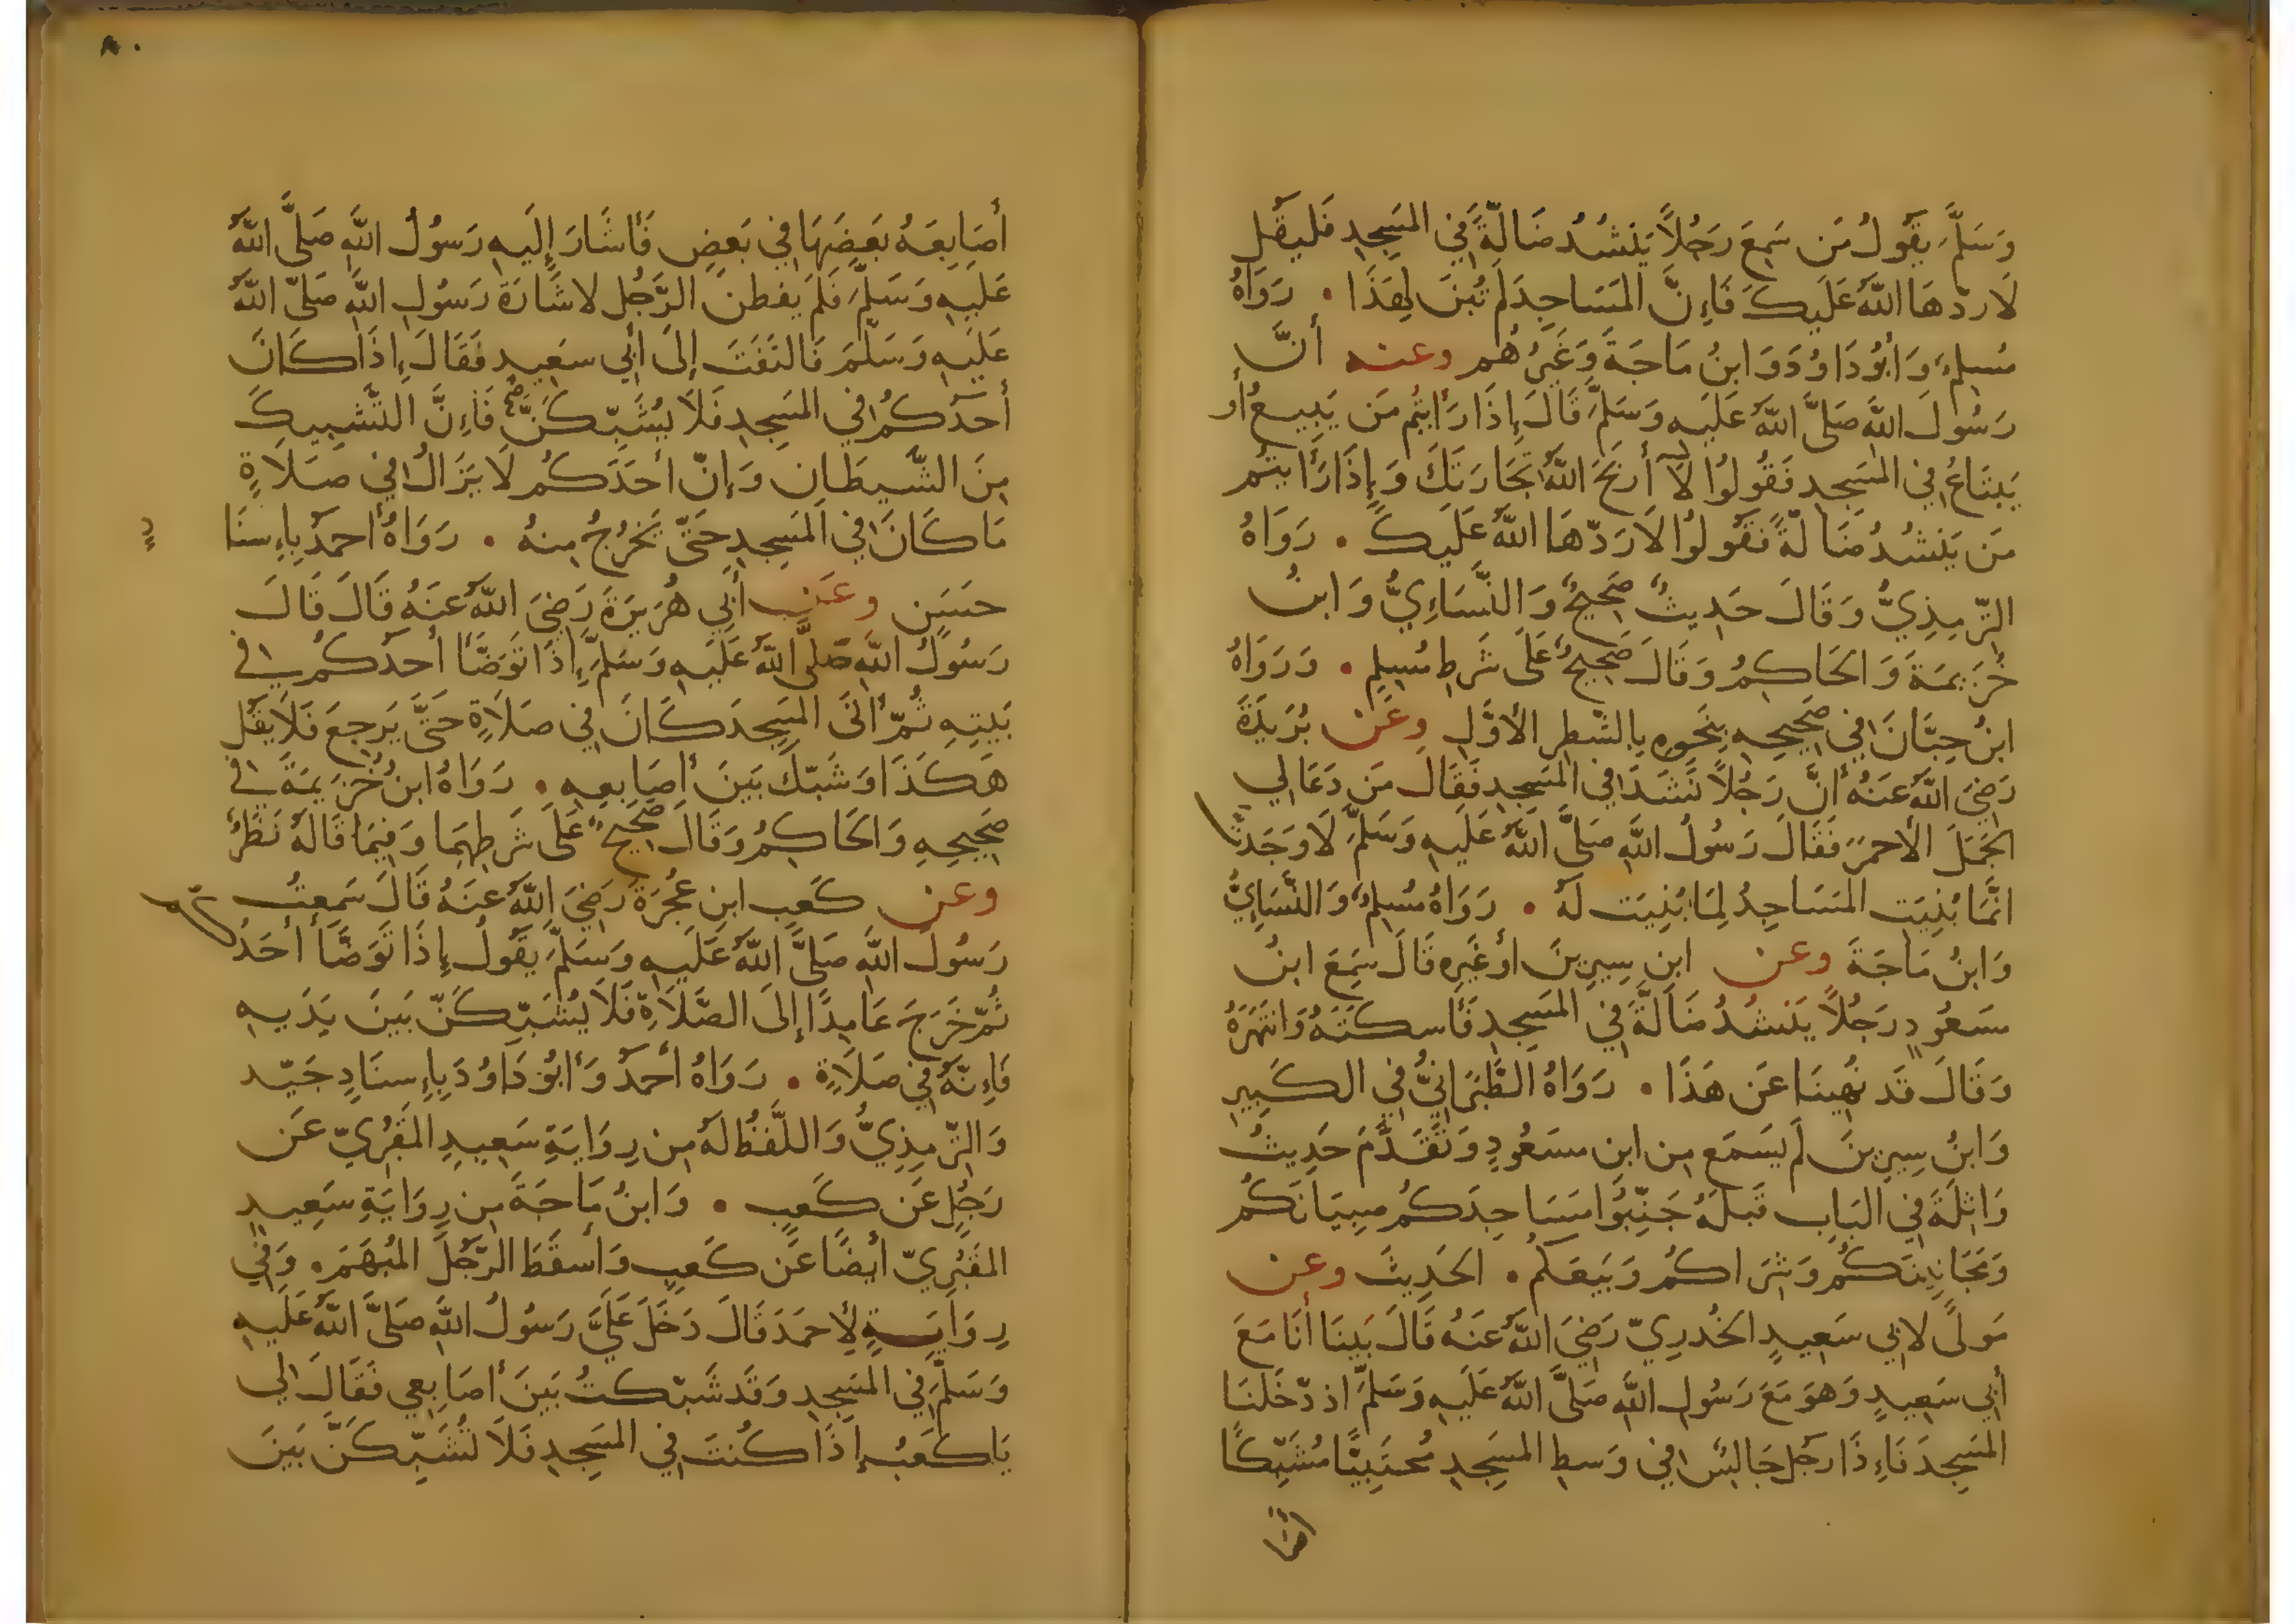 وَسَلَّمَ يَقُولُ مَن سَمِعَ رَجُلاً يَنشُدُ ضَالَّةً فِي المَسجِدِ فَليَقُل
لَا ردّهَا اللَّهُ عَلَيكَ فَإِنَّ المَسَاجِدَ لَم تُبنَ لِهَذَا . رَوَاهُ
مُسلِمٌ وَأَبُو دَاوُدَ وَابنُ مَاجَةَ وَغَيرُهُم وعنه أَنَّ
رَسُولَ اللَّهِ صَلَّى اللَّهُ عَلَيهِ وَسَلَّمَ قَالَ إِذَا رَأَيتُم مَن يَبِيعُ أَو
يَبتَاعُ فِي المَسجِدِ فَقُولُوا لَا أَربَحَ اللَّهُ تِجَارَتَكَ وَإِذَا رَأَيتُم
مَن يَنشُدُ ضَالَّةً فَقُولُوا لَا رَدّهَا اللَّهُ عَلَيكَ . رَوَاهُ
التِّرمِذِيُّ وَقَالَ حَدِيثٌ صَحِيحٌ وَالنَّسَاءِيُّ وَابنُ
خُزَيمَةَ وَالحَاكِمُ وَقَالَ صَحِيحٌ عَلَى شَرطِ مُسلِمٍ . وَرَوَاهُ
ابنُ حِبَّانَ فِي صَحِيحِهِ بِنَحوِهِ بِالشَّطرِ الأَوَّلِ وعَن بُرَيدَةَ
رَضِيَ اللَّهُ عَنهُ أَنَّ رَجُلاً نَشَدَ فِي المَسجِدِ فَقَالَ مَن دَعَا إِلَى
الجَمَلَ الأَحمَرَ فَقَالَ رَسُولُ اللَّهِ صَلَّى اللَّهُ عَلَيهِ وَسَلَّمَ لَا وَجَدتَّ
انَّمَا بُنِيَت المَسَاجِدُ لِمَا بُنِيَت لَهُ . رَوَاهُ مُسلِمٌ وَالنَّسَائِيُّ
وَابنُ مَاجَةَ وعن ابنِ سِيرِينَ أَو غَيرِهِ قَالَ سَمِعَ ابنُ
مسَعُودٍ رَجُلاً يَنشُدُ ضَالَّةً فِي المَسجِدِ فَأَسكَتَهُ وَانتَهَرَهُ
وَقَالَ قَد نُهِينَا عَن هَذَا . رَوَاهُ الطَّبَرَانِيُّ فِي الكَبِيرِ
وَابنُ سِيرِينَ لَم يَسمَع مِن ابنِ مسَعُودٍ وَتَقَدَّمَ حَدِيثُ
وَاثِلَةَ فِي البَابِ قَبلَهُ جَنِّبُوا مَسَاجِدَكُم صِبيَانَكُم
وَمَجَانِينَكُم وَشِرَاكُم وَبَيعَكُم . الحَدِيثَ وعن
مَولىً لأَبِي سَعِيدٍ الخُدرِيّ رَضِيَ اللَّهُ عَنهُ قَالَ بَينَا أَنَا مَعَ
أَبِي سَعِيدٍ وَهوَ مَعَ رَسُولِ اللَّهِ صَلَّى اللَّهُ عَلَيهِ وَسَلَّمَ اذ دّخَلنَا
المَسجِدَ فَإِذَا رجُل جَالِسٌ فِي وَسطِ المسَجِدِ مُحتَبِيًّا مُشَبِّكًا
أَصَابِعَهُ بَعضَهَا فِي بَعضٍ فَأَشَارَ إِلَيهِ رَسُولُ اللَّهِ صَلَّى اللَّهُ
عَلَيهِ وَسَلَّمَ فَلَم يفطن الرَّجُل لاشَارَة رَسُولِ اللَّهِ صَلَّى اللَّهُ
عَلَيهِ وَسَلَّمَ فَالتَفَتَ إِلَى أَبِي سَعِيدٍ فَقَالَ إِذَا كَانَ
أَحَدُكُم فِي المَسجِدِ فَلَا يُشَبِّكَنَّ فَإِنَّ التَّشبِيكَ
مِنَ الشَّيطَانِ وَإِنّ أَحَدَكُم لَا يَزَالُ فِي صَلَاةٍ
مَا كَانَ فِي المَسجِدِ حَتَّى يَخرُجُ مِنهُ . رَوَاهُ أَحمَدُ بِإِسنَا
دٍ
حسَنٍ وعَن أَبِي هُرَيرَةَ رَضِيَ اللَّهُ عَنهُ قَالَ قَالَ
رَسُولُ اللَّهِ صَلَّى اللَّهُ عَلَيهِ وَسَلَّمَ إِذَا تَوَضَّأَ أَحَدُكُم فِي
بَيتِهِ ثُمّ أَتَى المَسجِدَ كَانَ فِي صَلَاةٍ حَتَّى يَرجِعَ فَلَا يَقُل
هَكَذَا وَشَبّكَ بَينَ أَصَابِعِهِ . رَوَاهُ ابنُ خُزَيمَةَ فِي
صَحِيحِهِ وَالحَاكِمُ وَقَالَ صَحِيحٌ عَلَى شَرطِهِمَا وَفِيمَا قَالَهُ نَظَرٌ
وعن كَعبِ ابنِ عُجرَةَ رَضِيَ اللَّهُ عَنهُ قَالَ سَمِعتُ
رَسُولَ اللَّهِ صَلَّى اللَّهُ عَلَيهِ وَسَلَّمَ يَقُولُ إِذَا تَوَضَّأَ أَحَدُكُم
ثُمّ خَرَجَ عَامِدًا إِلَى الصَّلَاةِ فَلَا يُشَبِّكَنّ بَينَ يَدَيهِ
فَإِنّهُ فِي صَلَاةٍ . رَوَاهُ أَحمَدُ وَأَبُو دَاوُدَ بِإِسنَادٍ جَيّدٍ
وَالتِّرمِذِيُّ وَاللَّفظُ لَهُ مِن رِوَايَةِ سَعِيدِ المَقبُرِيّ عَن
رَجُلٍ عَن كَعبٍ . وَابنُ مَاجَةَ مِن رِوَايَةِ سَعِيدٍ
المَقبُرِيّ أَيضًا عَن كَعبٍ وَأَسقَطَ الرَّجُلَ المُبهَمَ . وَفِي
رِوَايَةٍ لأَحمَدَ قَالَ دَخَلَ عَلَيَّ رَسُولُ اللَّهِ صَلَّى اللَّهُ عَلَيهِ
وَسَلَّمَ فِي المَسجِدِ وَقَد شَبّكتُ بَينَ أَصَابِعِي فَقَالَ لِي
يَا كَعبُ إِذَا كُنتَ فِي المَسجِدِ فَلَا تُشَبِّكَنَّ بَينَ